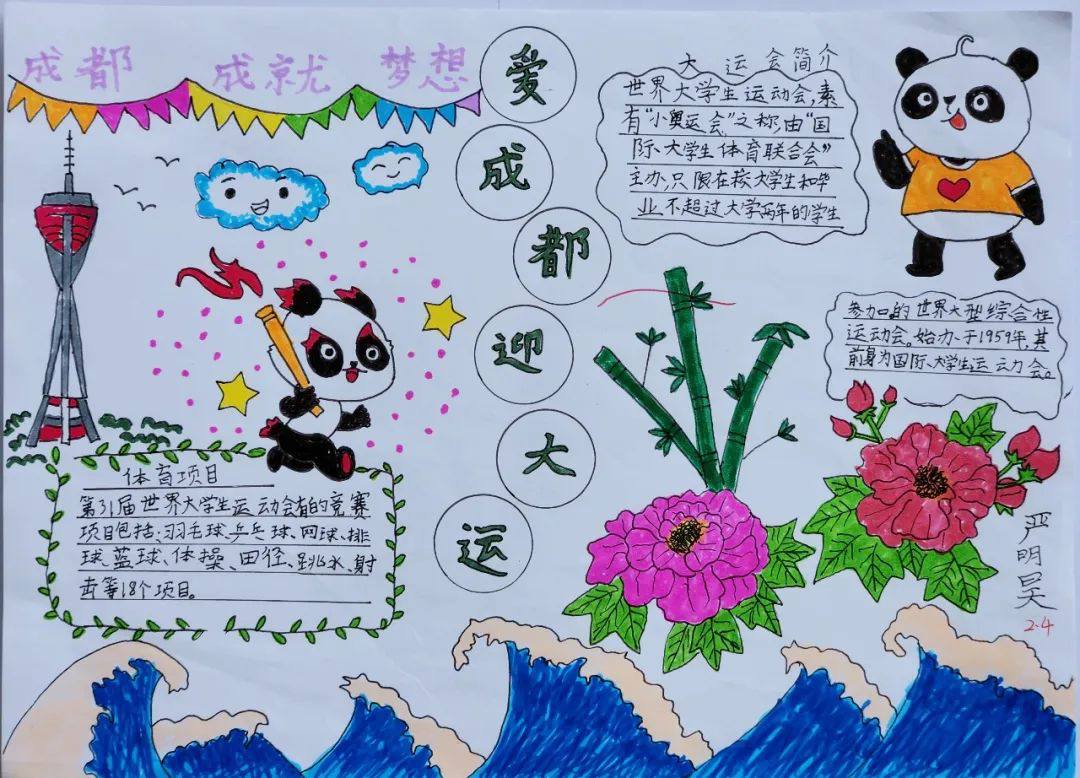 成都 成就 梦想
爱
成
都
迎
大
运
大运会简介
世界大学生运动会,素
有“小奥运会”之称,由“国
际大学生体育联合会”
主办,只限在校大学生和毕
业不超过大学两年的学生
参加的世界大型综合性
运动会。始办于1959年,其
前身为国际大学生运动会。
体育项目
第31届世界大学生运动会有的竞赛
项目包括:羽毛球、乒乓球、网球、排
球、蓝球、体操、田径、跳水、射
击等18个项目。
严明昊
2.4